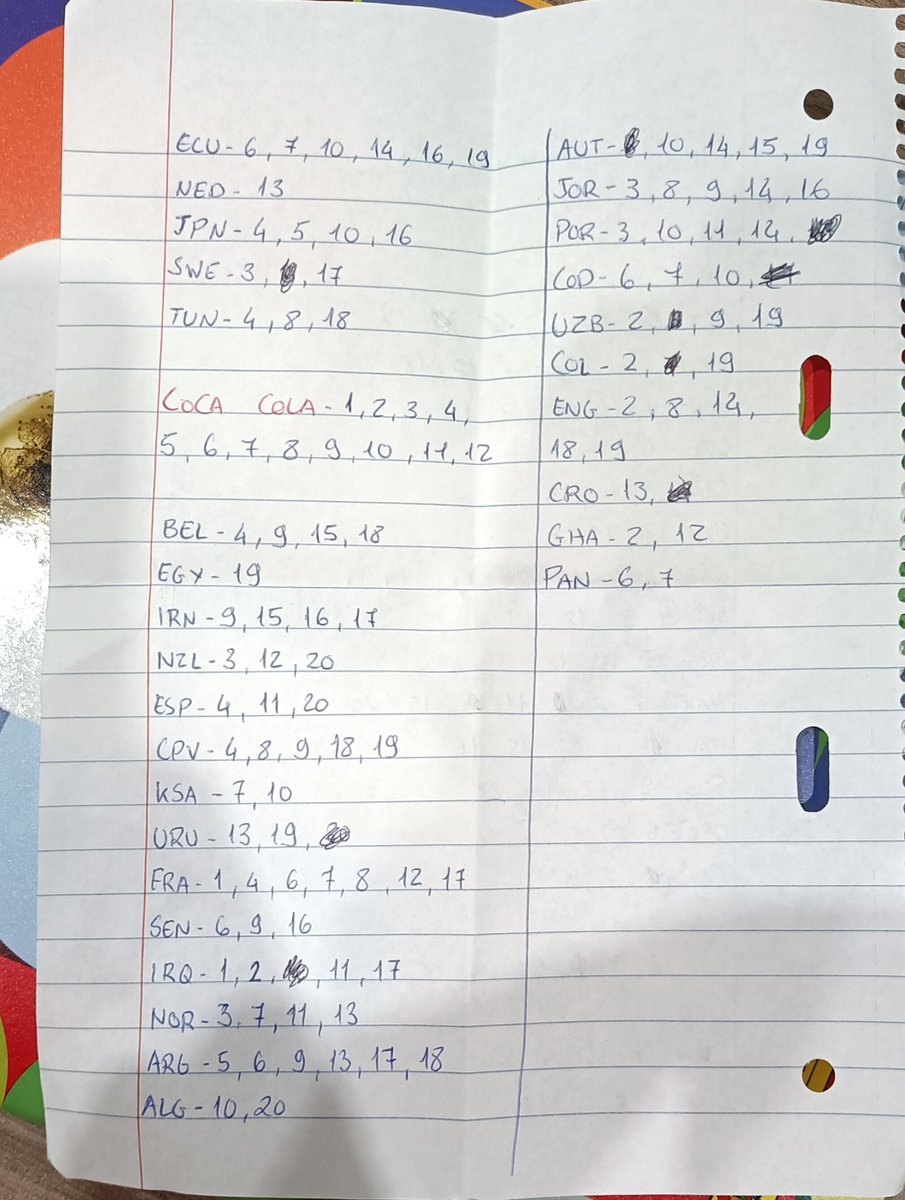 ECU - 6, 7, 10, 14, 16, 19
NED - 13
JPN - 4, 5, 10, 16
SWE - 3, , 17
TUN - 4, 8, 18
COCA COLA - 1, 2, 3, 4,
5, 6, 7, 8, 9, 10, 11, 12
BEL - 4, 9, 15, 18
EGY - 19
IRN - 9, 15, 16, 17
NZL - 3, 12, 20
ESP - 4, 11, 20
CPV - 4, 8, 9, 18, 19
KSA - 7, 10
URU - 13, 19,
FRA - 1, 4, 6, 7, 8, 12, 17
SEN - 6, 9, 16
IRQ - 1, 2, , 11, 17
NOR - 3, 7, 11, 13
ARG - 5, 6, 9, 13, 17, 18
ALG - 10, 20
AUT - , 10, 14, 15, 19
JOR - 3, 8, 9, 14, 16
POR - 3, 10, 11, 12,
COD - 6, 7, 10,
UZB - 2, , 9, 19
COL - 2, , 19
ENG - 2, 8, 12,
18, 19
CRO - 13,
GHA - 2, 12
PAN - 6, 7